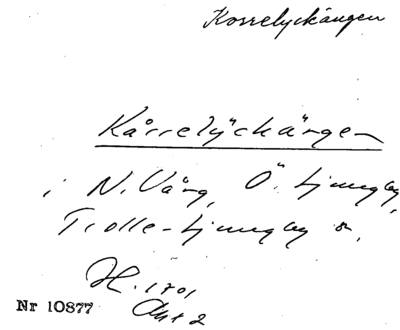 Korrelyckängen
Kårrelyckängen
i N. Vång, Ö. Ljungby,
Trolle-Ljungby sn.
H. 1701
Akt 2
Nr 10877